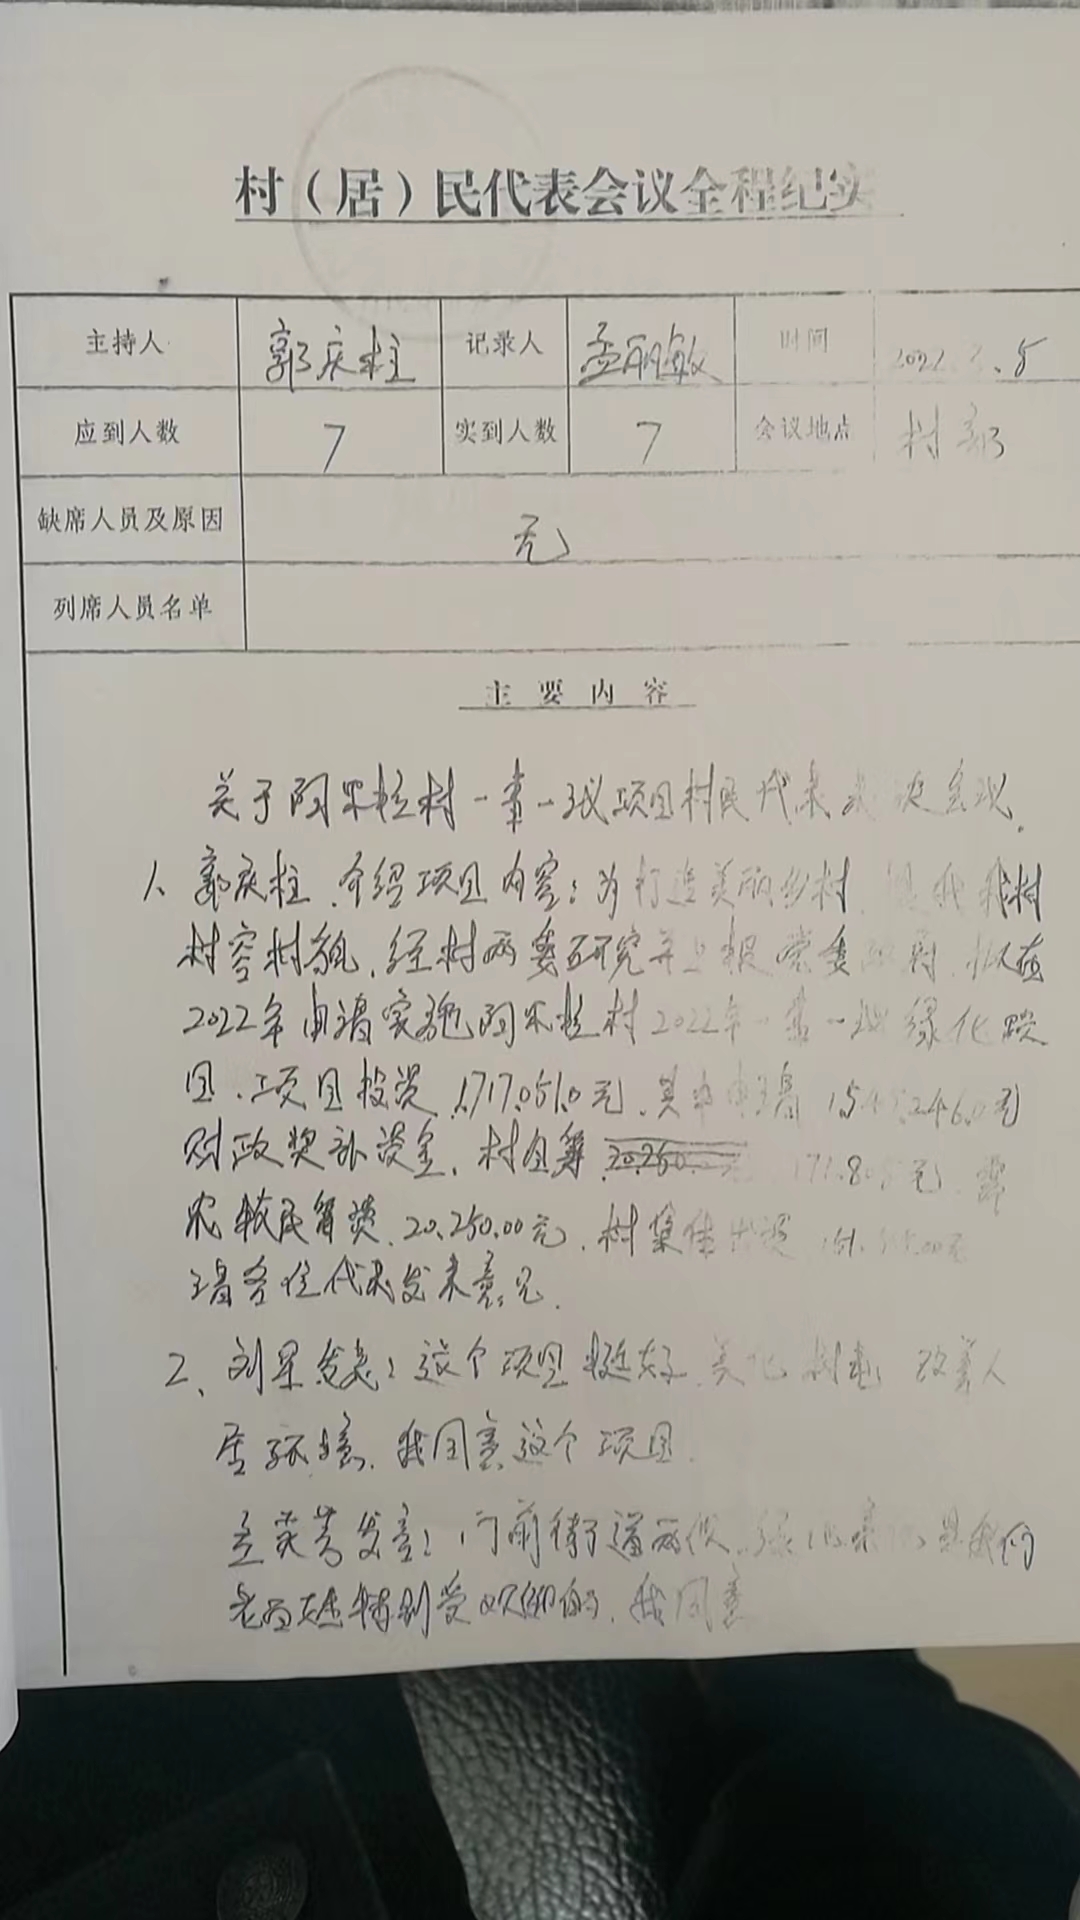 村（居）民代表会议全程纪实
主持人 郭庆柱 记录人 孟丽敏 时间 2022. .5
应到人数 7 实到人数 7 会议地点 村部
缺席人员及原因 无
列席人员名单
主要内容
关于阿 村一事一议项目村民代表 决会议.
1、郭庆柱.介绍项目内容:为打造美丽乡村, 我村
村容村貌,经村两委研究并上报党委政府,拟在
2022年申请实施阿 村2022年一事一议绿化项
目.项目投资 1,717,051.0元,其中申请 1,545,246.0元
财政奖补资金,村自筹 171.80 元.需
农牧民筹资 20,250.00元,村集体出资 151. .00元
请各位代表发表意见.
2、刘 发言:这个项目挺好,美化村屯 改善人
居环境,我同意这个项目.
孟 芳发言:门前街道两侧 是我们
老百姓特别受欢迎的,我同意